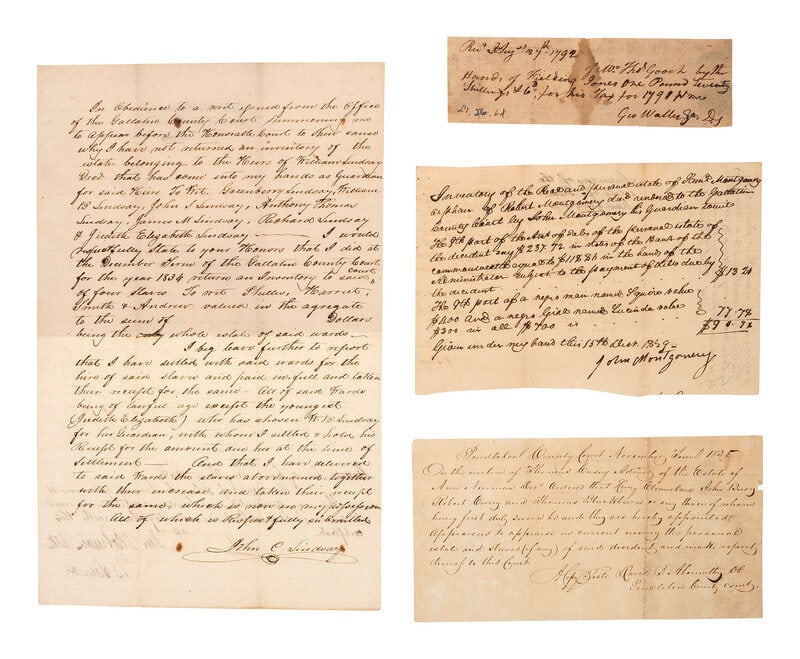 In Obedience to a writ issued from the Office
of the Gallatin County Court summoning me
to Appear before the Honorable Court to shew cause
why I have not returned an inventory of the
estate belonging to the Heirs of William Lindsay
Decd that had come into my hands as Guardian
for said Heirs To Wit. Greenberry Lindsay, William
B Lindsay, John I Lindsay, Anthony Thomas
Lindsay, James M Lindsay, Richard Lindsay
& Judith Elizabeth Lindsay — I would
respectfully state to your Honors that I did at
the December Term of the Gallatin County Court
for the year 1834 return an Inventory to said court
of four slaves To wit Phillis, Harriet,
Smith & Andrew valued in the agregate
to the sum of Dollars
being the whole estate of said wards —
I beg leave further to report
that I have settled with said wards for the
hire of said slaves and paid in full and taken
their receipt for the same — All of said Wards
being of lawful age except the youngest
(Judith Elizabeth) who has chosen W. B Lindsay
for her Guardian, with whom I settled & hold his
Receipt for the amount due her at the time of
Settlement — And that I have delivered
to said Wards the slaves aforenamed, together
with their increase and taken their receipt
for the same, which is now in my possession
All of which is respectfully submitted
John C Lindsay
Recd Augt 27th 1792
of Mr Thos Gooch by the
Hands of Fielding Jones One Pound Twenty
Shillings & 6d. for his Tax for 1791
Geo Waller
Inventory of the Real and personal estate of Montgomery
orphan of Robert Montgomery decd rendered to the Gallatin
County Court by John Montgomery his Guardian
The 9th part of the of sales of the personal estate of
the decedent say $237.72 in notes of the Bank of the
commonwealth equal to $118.86 in the hands of the
Administrator subject to the payment of debts due by
the decedent $13 24
The 9th part of a negro man named Squire value
$400 And a negro Girl named Lucinda value
$300 in all $700 is 77.78
Given under my hand this 15th Decr.
John Montgomery
Pendleton County Court November Term
On the motion of Thomas of the Estate of
Ann Decd Ordered that Henry John
Robert and Thomas Blackburn or any three of whom
being first duly sworn be and they are hereby appointed
Appraisers to appraise in current money the personal
estate and slaves (if any) of said decedent, and make report
thereof to this Court
David
Pendleton County court